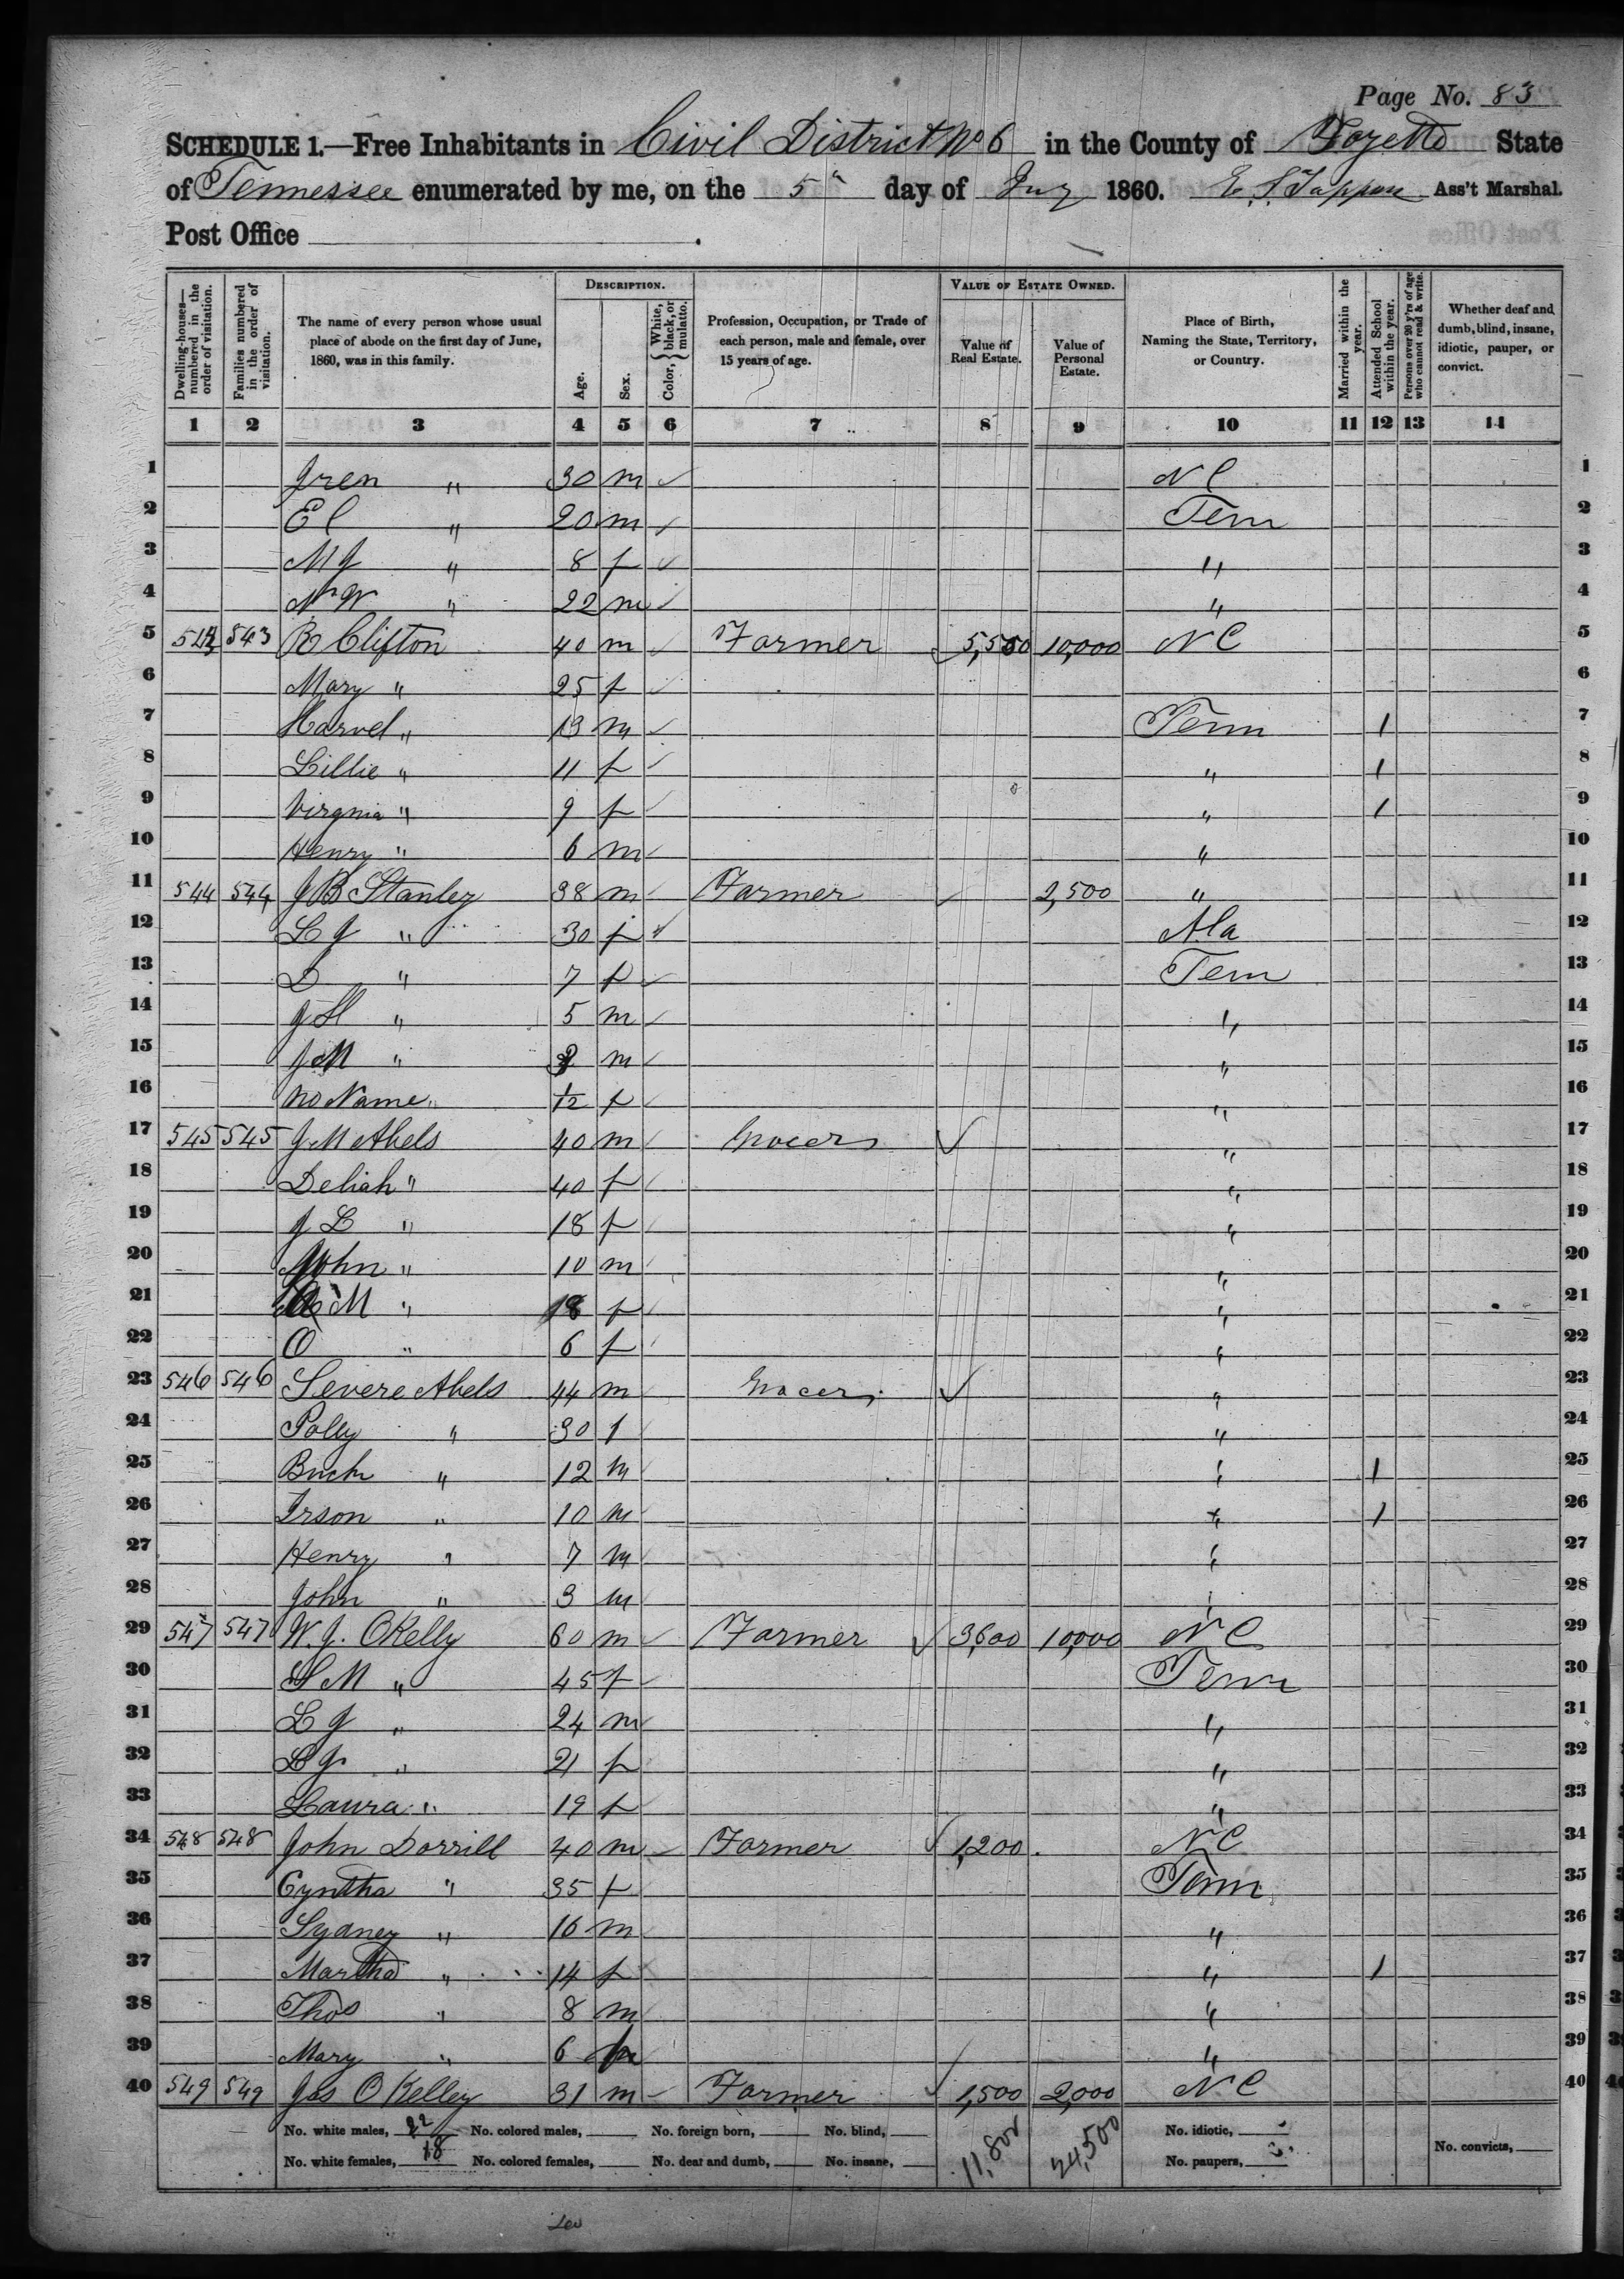 Page No. 83
SCHEDULE 1.—Free Inhabitants in Civil District No 6 in the County of Fayette State
of Tennessee enumerated by me, on the 5" day of July 1860. E. S. Tappan Ass't Marshal.
Post Office
Dwelling-houses—numbered in the order of visitation.
Families numbered in the order of visitation.
The name of every person whose usual place of abode on the first day of June, 1860, was in this family.
DESCRIPTION.
Age.
Sex.
Color, { White, black, or mulatto.
Profession, Occupation, or Trade of each person, male and female, over 15 years of age.
VALUE OF ESTATE OWNED.
Value of Real Estate.
Value of Personal Estate.
Place of Birth, Naming the State, Territory, or Country.
Married within the year.
Attended School within the year.
Persons over 20 y'rs of age who cannot read & write.
Whether deaf and dumb, blind, insane, idiotic, pauper, or convict.
1 2 3 4 5 6 7 8 9 10 11 12 13 14
1 Gren " 30 m ✓ N C 1
2 E C " 20 m ✓ Tenn 2
3 M J " 8 f ✓ " 3
4 N W " 22 m ✓ " 4
5 543 543 B Clifton 40 m ✓ Farmer 5,550 10,000 N C 5
6 Mary " 25 f ✓ 6
7 Harvel " 13 m ✓ Tenn 1 7
8 Lillie " 11 f ✓ " 1 8
9 Virgnia " 9 f ✓ " 1 9
10 Henry " 6 m ✓ " 10
11 544 544 J B Stanley 38 m ✓ Farmer ✓ 2,500 " 11
12 L J " 30 f ✓ Ala 12
13 D " 7 f ✓ Tenn 13
14 J H " 5 m ✓ " 14
15 J M " m ✓ " 15
16 No Name " 1/12 f ✓ " 16
17 545 545 J M Abels 40 m ✓ Grocer ✓ " 17
18 Deliah " 40 f ✓ " 18
19 J L " 18 f ✓ " 19
20 John " 10 m ✓ " 20
21 M " 18 f ✓ " 21
22 O " 6 f ✓ " 22
23 546 546 Severe Abels 44 m Grocer ✓ " 23
24 Polly " 30 f " 24
25 Buck " 12 m " 1 25
26 Irson " 10 m " 1 26
27 Henry " 7 m " 27
28 John " 3 m " 28
29 547 547 W. J. OKelly 60 m ✓ Farmer ✓ 3,600 10,000 N C 29
30 S M " 45 f ✓ Tenn 30
31 L J " 24 m ✓ " 31
32 L J " 21 f " 32
33 Laura " 19 f ✓ " 33
34 548 548 John Dorrill 40 m ✓ Farmer ✓ 1,200 N C 34
35 Cyntha " 35 f ✓ Tenn 35
36 Sydney " 16 m " 36
37 Martha " 14 f " 1 37
38 Thos " 8 m " 38
39 Mary " 6 f " 39
40 549 549 Jas O Kelley 31 m ✓ Farmer ✓ 1,500 2,000 N C 40
No. white males, 22 No. colored males, No. foreign born, No. blind, 11,800 24,500 No. idiotic,
No. white females, 18 No. colored females, No. deaf and dumb, No. insane, No. paupers, No. convicts,